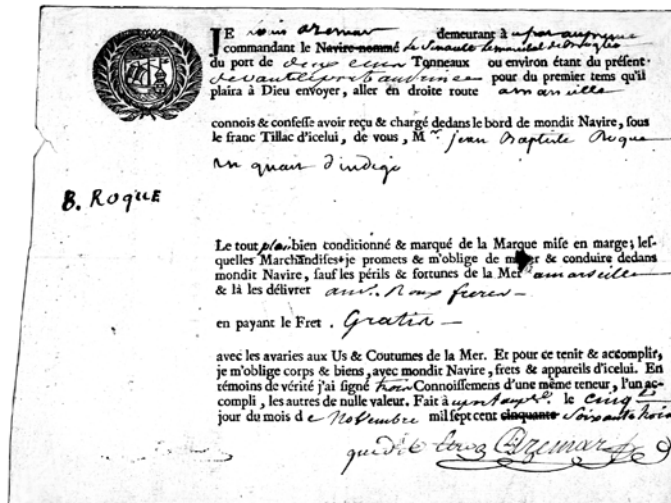 JE Louis azemar demeurant à
commandant le Navire nommé Le Senault Le marechal de Broglio
du port de deux cens Tonneaux ou environ étant du présent
devant le port au prince pour du premier tems qu'il
plaira à Dieu envoyer, aller en droite route a marseille
connois & confesse avoir reçu & chargé dedans le bord de mondit Navire, sous
le franc Tillac d'icelui, de vous, Mr. jean Baptiste Roque
un quart d'indigo
B. ROQUE
Le tout bien conditionné & marqué de la Marque mise en marge; les-
quelles Marchandises je promets & m'oblige de & conduire dedans
mondit Navire, sauf les périls & fortunes de la Mer a marseille
& là les délivrer Roux freres
en payant le Fret. Gratis
avec les avaries aux Us & Coutumes de la Mer. Et pour ce tenir & accomplir,
je m'oblige corps & biens, avec mondit Navire, frets & appareils d'icelui. En
témoins de vérité j'ai signé trois Connoissemens d'une même teneur, l'un ac-
compli, les autres de nulle valeur. Fait à le cinq
jour du mois de Novembre mil sept cent cinquante Soixante trois
que dit etre Azemar